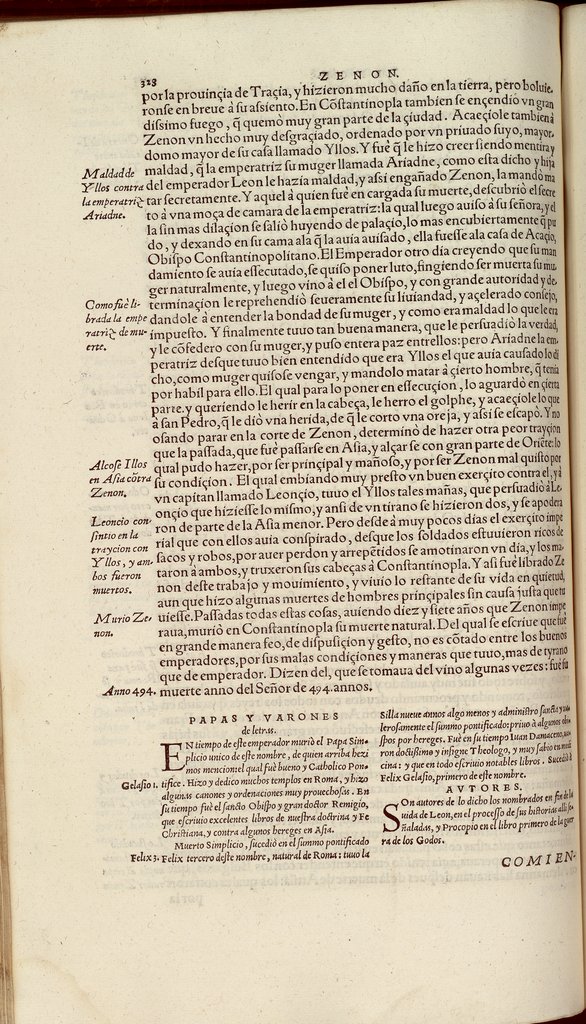 328
ZENON.
por la prouinçia de Traçia, y hizieron mucho daño en la tierra, pero boluie-
ronse en breue à su assiento. En Cõstantinopla tambien se ençendiò vn gran
dissimo fuego, q̃ quemò muy gran parte de la çiudad. Acaeçiole tambien à
Zenon vn hecho muy desgraçiado, ordenado por vn priuado suyo, mayor-
domo mayor de su casa llamado Yllos. Y fuè q̃ le hizo creer siendo mentira y
maldad, q̃ la emperatriz su muger llamada Ariadne, como esta dicho y hija
del emperador Leon le hazía maldad, y assi engañado Zenon, la mandò ma
tar secretamente. Y aquel à quien fuè en cargada su muerte, descubriò el secre
to à vna moça de camara de la emperatriz: la qual luego auiso à su señora, y el
la sin mas dilaçion se saliò huyendo de palaçio, lo mas encubiertamente q̃ pu
do, y dexando en su cama ala q̃ la auía auisado, ella fuesse ala casa de Acaçio,
Obispo Constantinopolitano. El Emperador otro dia creyendo que su man
damiento se auía essecutado, se quiso poner luto, fingiendo ser muerta su mu
ger naturalmente, y luego vino à el el Obispo, y con grande autoridad y de-
terminaçion le reprehendiò seueramente su liuiandad, y açelerado consejo,
dandole à entender la bondad de su muger, y como era maldad lo que le era
impuesto. Y finalmente tuuo tan buena manera, que le persuadiò la verdad,
y le cõfedero con su muger, y puso entera paz entrellos: pero Ariadne la em-
peratriz desque tuuo bien entendido que era Yllos el que auía causado lo di
cho, como muger quisose vengar, y mandolo matar à çierto hombre, q̃ tenía
por habil para ello. El qual para lo poner en essecuçion, lo aguardò en çierta
parte, y queriendo le herir en la cabeça, le herro el golphe, y acaeçiole lo que
à san Pedro, q̃ le diò vna herida, de q̃ le corto vna oreja, y assi se escapò. Y no
osando parar en la corte de Zenon, determinò de hazer otra peor trayçion
que la passada, que fuè passarse en Asia, y alçar se con gran parte de Oriẽte: lo
qual pudo hazer, por ser prinçipal y mañoso, y por ser Zenon mal quisto por
su condiçion. El qual embiando muy presto vn buen exerçito contra el, y à
vn capitan llamado Leonçio, tuuo el Yllos tales mañas, que persuadiò à Le-
onçio que hiziesse lo mismo, y ansi de vn tirano se hizieron dos, y se apodera
ron de parte de la Asia menor. Pero desde à muy pocos días el exerçito impe
rial que con ellos auía conspirado, desque los soldados estuuieron ricos de
sacos y robos, por auer perdon y arrepẽtidos se amotinaron vn día, y los ma-
taron à ambos, y truxeron sus cabeças à Constantinopla. Y assi fuè librado Ze
non deste trabajo y mouimiento, y viuio lo restante de su vida en quietud,
aun que hizo algunas muertes de hombres prinçipales sin causa justa que tu
uiesse. Passadas todas estas cosas, auiendo diez y siete años que Zenon impe
raua, muriò en Constantinopla su muerte natural. Del qual se escriue que fuè
en grande manera feo, de dispusiçion y gesto, no es cõtado entre los buenos
emperadores, por sus malas condiçiones y maneras que tuuo, mas de tyrano
que de emperador. Dizen del, que se tomaua del vino algunas vezes: fuè su
muerte anno del Señor de 494. annos.
Maldad de
Yllos contra
la emperatriz
Ariadne.
Como fuè li-
brada la empe
ratriz de mu-
erte.
Alçose Illos
en Asia cõtra
Zenon.
Leoncio con-
sintio en la
trayçion con
Yllos, y am-
bos fueron
muertos.
Murio Ze-
non.
Anno 494.
PAPAS Y VARONES
de letras.
EN tiempo de este emperador muriò el Papa Sim-
plicio unico de este nombre, de quien arriba hezi
mos mencion: el qual fuè bueno y Catholico Pon-
tifice. Hizo y dedico muchos templos en Roma, y hizo
algunas canones y ordenaciones muy prouechosas. En
su tiempo fuè el sancto Obispo y gran doctor Remigio,
que escriuio excellentes libros de nuestra doctrina y Fe
Christiana, y contra algunos hereges en Asia.
Muerto Simplicio, sucediò en el summo pontificado
Felix tercero deste nombre, natural de Roma: tuuo la
Gelasio 1.
Felix 3.
Silla nueue annos algo menos y administro sancta y va-
lerosamente el summo pontificado: priuo à algunos obis-
spos por hereges. Fuè en su tiempo Iuan Damaceno, va-
ron doctissimo y insigne Theologo, y muy sabio en medi
cina: y que en todo escriuio notables libros. Sucediò à
Felix Gelasio, primero de este nombre.
AVTORES.
SOn autores de lo dicho los nombrados en fin de la
uida de Leon, en el processo de sus historias alli se-
ñaladas, y Procopio en el libro primero de la guer
ra de los Godos.
COMIEN-